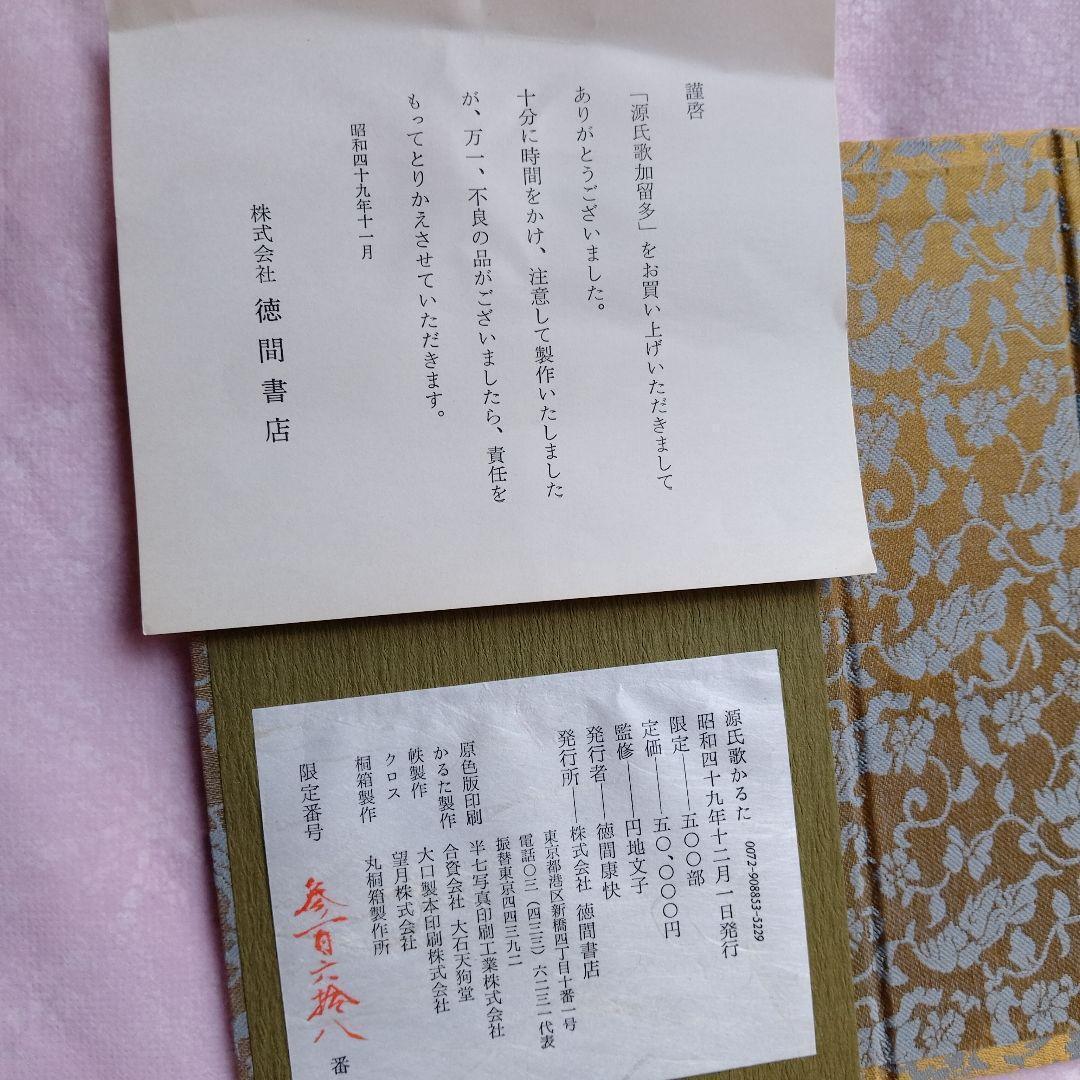 謹啓
「源氏歌加留多」をお買い上げいただきまして
ありがとうございました。
十分に時間をかけ、注意して製作いたしました
が、万一、不良の品がございましたら、責任を
もってとりかえさせていただきます。
昭和四十九年十一月
株式会社 徳間書店
源氏歌かるた 0072-908853-5229
昭和四十九年十二月一日発行
限定――五〇〇部
定価――五〇、〇〇〇円
監修――円地文子
発行者――徳間康快
発行所――株式会社 徳間書店
東京都港区新橋四丁目十番一号
電話〇三(四三三)六二三一代表
振替東京四四三九二
原色版印刷 半七写真印刷工業株式会社
かるた製作 合資会社 大石天狗堂
帙製作 大口製本印刷株式会社
クロス 望月株式会社
桐箱製作 丸桐箱製作所
限定番号 参百六拾八 番